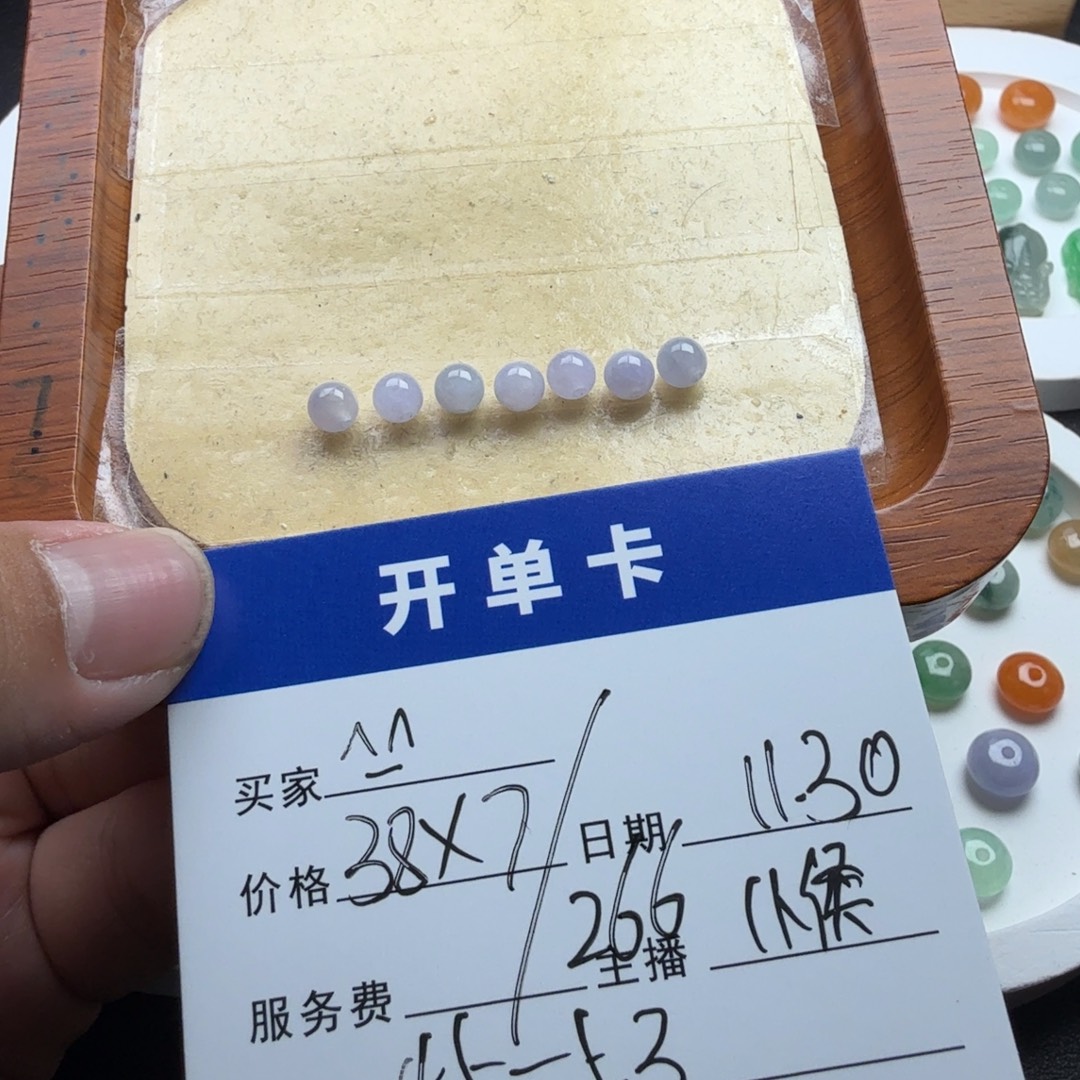 开单卡
买家
价格 38×7 日期 11.30
266
服务费 主播 小侯